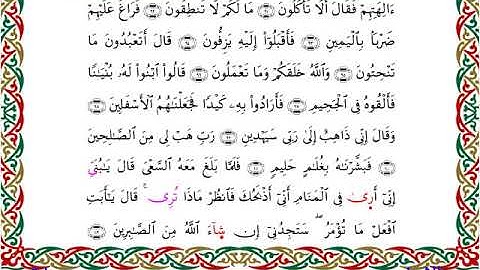 ءَالِهَتِهِمْ فَقَالَ أَلَا تَأْكُلُونَ ۝٩١ مَا لَكُمْ لَا تَنطِقُونَ ۝٩٢ فَرَاغَ عَلَيْهِمْ
ضَرْبَۢا بِٱلْيَمِينِ ۝٩٣ فَأَقْبَلُوٓا۟ إِلَيْهِ يَزِفُّونَ ۝٩٤ قَالَ أَتَعْبُدُونَ مَا
تَنْحِتُونَ ۝٩٥ وَٱللَّهُ خَلَقَكُمْ وَمَا تَعْمَلُونَ ۝٩٦ قَالُوا۟ ٱبْنُوا۟ لَهُۥ بُنْيَٰنًا
فَأَلْقُوهُ فِى ٱلْجَحِيمِ ۝٩٧ فَأَرَادُوا۟ بِهِۦ كَيْدًا فَجَعَلْنَٰهُمُ ٱلْأَسْفَلِينَ ۝٩٨
وَقَالَ إِنِّى ذَاهِبٌ إِلَىٰ رَبِّى سَيَهْدِينِ ۝٩٩ رَبِّ هَبْ لِى مِنَ ٱلصَّٰلِحِينَ
۝١٠٠ فَبَشَّرْنَٰهُ بِغُلَٰمٍ حَلِيمٍ ۝١٠١ فَلَمَّا بَلَغَ مَعَهُ ٱلسَّعْىَ قَالَ يَٰبُنَىِّ
إِنِّىٓ أَرِىٰ فِى ٱلْمَنَامِ أَنِّىٓ أَذْبَحُكَ فَٱنظُرْ مَاذَا تُرِى ۚ قَالَ يَٰٓأَبَتِ
ٱفْعَلْ مَا تُؤْمَرُ ۖ سَتَجِدُنِىٓ إِن شَآءَ ٱللَّهُ مِنَ ٱلصَّٰبِرِينَ ۝١٠٢